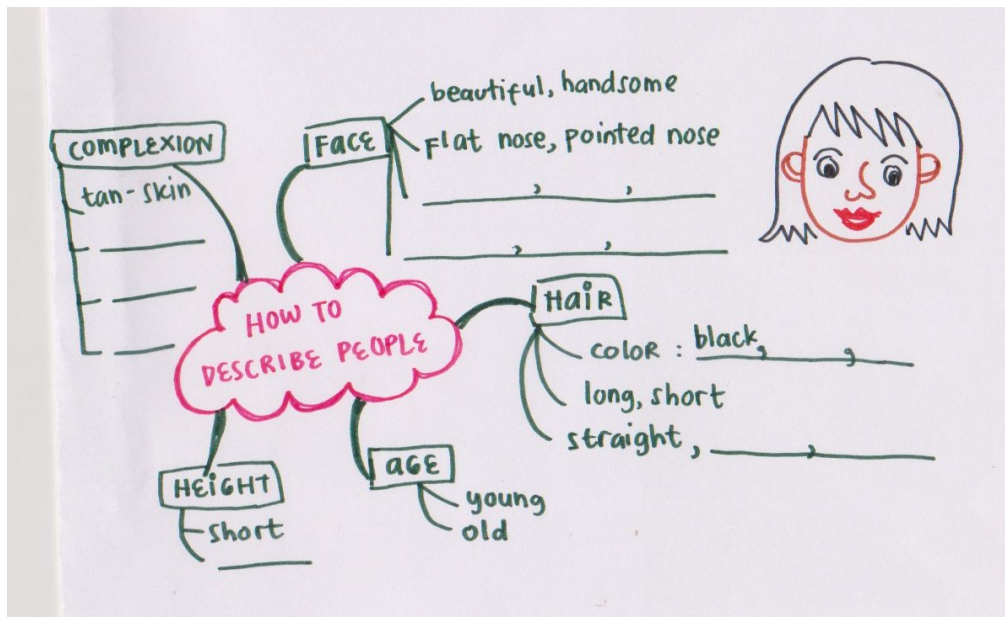 COMPLEXION
tan-skin
FACE
beautiful, handsome
Flat nose, pointed nose
HOW TO
DESCRIBE PEOPLE
HAiR
COLOR : black,
long, short
straight,
AGE
young
old
HEiGHT
short